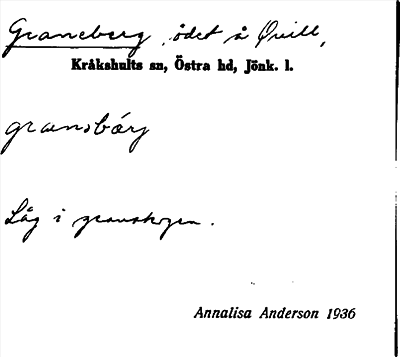 Graneberg, ödet å Qvill,
Kråkshults sn, Östra hd, Jönk. l.
gransbärj
Låg i granskogen.
Annalisa Anderson 1936